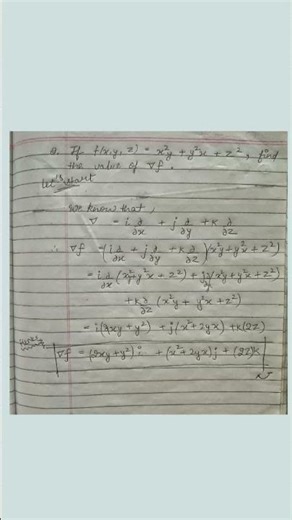 Q. If f(x,y,z) = x²y + y²x + z², find
the value of ∇f.
let's start
we know that,
∇ = i ∂/∂x + j ∂/∂y + k ∂/∂z
∴ ∇f = (i ∂/∂x + j ∂/∂y + k ∂/∂z)(x²y + y²x + z²)
= i ∂/∂x (x²y + y²x + z²) + j ∂/∂y (x²y + y²x + z²)
+ k ∂/∂z (x²y + y²x + z²)
= i(2xy + y²) + j(x² + 2yx) + k(2z)
∇f = (2xy + y²) i + (x² + 2yx) j + (2z) k